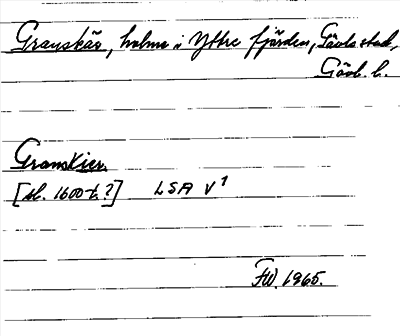 Granskär, holme i Yttre fjärden, Gävle stad,
Gävb. l.
Gramskier.
[sl. 1600-t.?] LSA V1
FW. 1965.